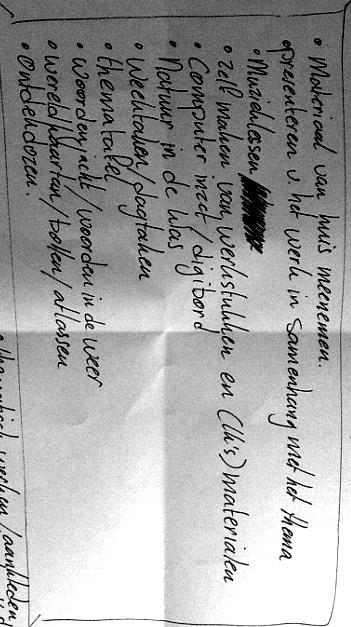 • Materiaal van huis meenemen.
• presenteren v. het werk in samenhang met het thema
• Muzieklessen
• zelf maken van werkstukken en (lk's) materialen
• Computer inzet / digibord
• Natuur in de klas
• Weektaken / dagtaken
• thematafel
• Woorden jacht / woorden in de weer
• Wereldkaarten / bollen / atlassen
• Ontdekdozen.
• thematisch werken / aanbieden